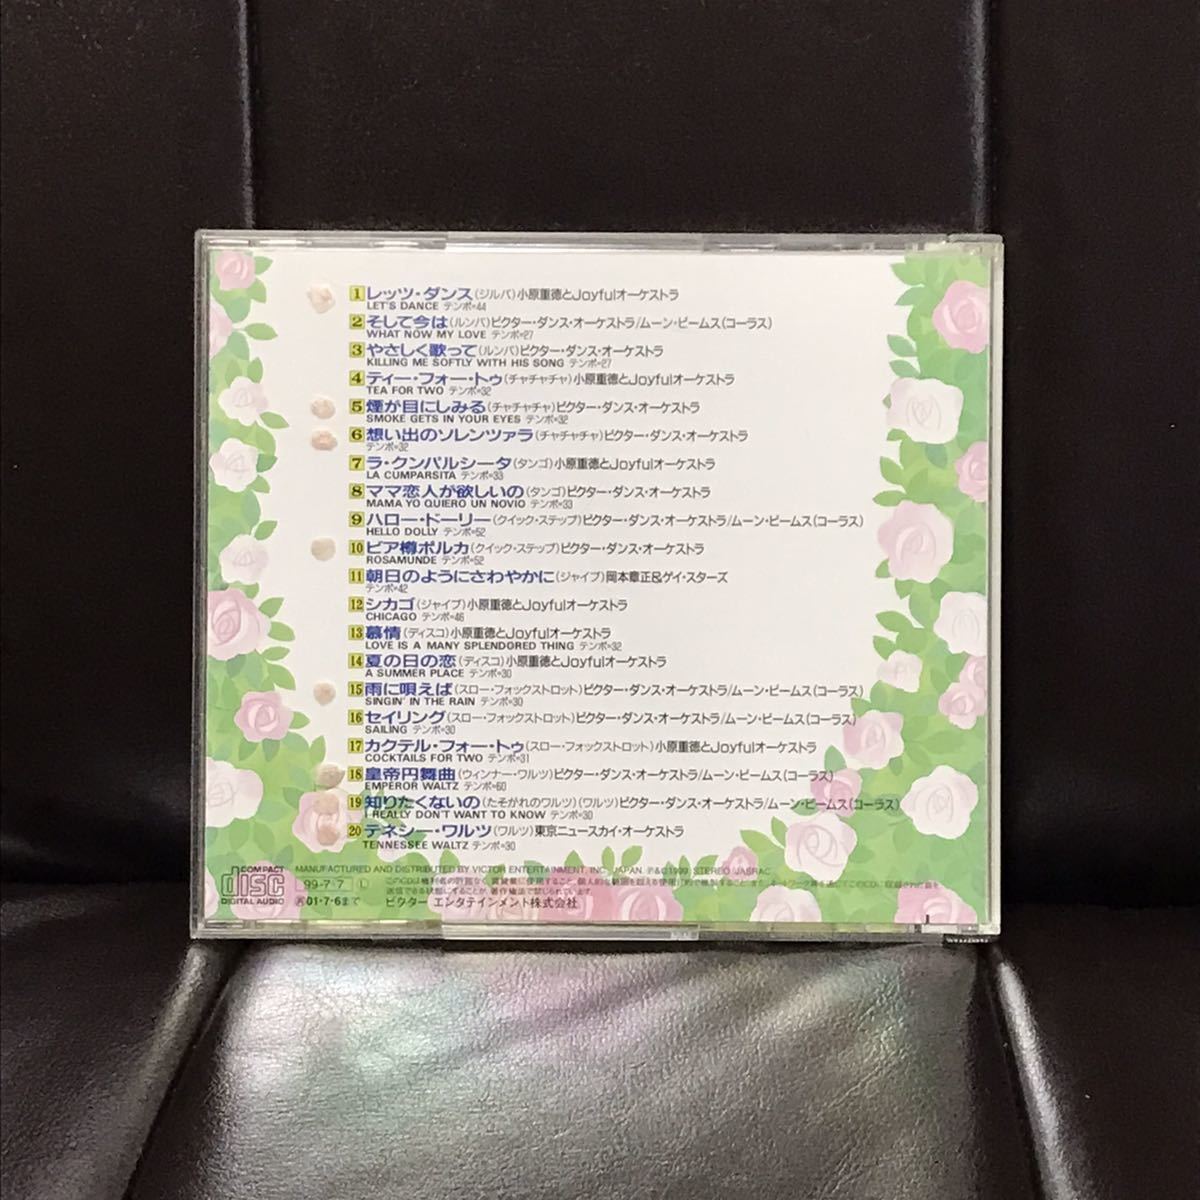 1 レッツ・ダンス(ジルバ)小原重徳とJoyfulオーケストラ
LET'S DANCE テンポ=44
2 そして今は(ルンバ)ビクター・ダンス・オーケストラ/ムーン・ビームス(コーラス)
WHAT NOW MY LOVE テンポ=27
3 やさしく歌って(ルンバ)ビクター・ダンス・オーケストラ
KILLING ME SOFTLY WITH HIS SONG テンポ=27
4 ティー・フォー・トゥ(チャチャチャ)小原重徳とJoyfulオーケストラ
TEA FOR TWO テンポ=32
5 煙が目にしみる(チャチャチャ)ビクター・ダンス・オーケストラ
SMOKE GETS IN YOUR EYES テンポ=32
6 想い出のソレンツァラ(チャチャチャ)ビクター・ダンス・オーケストラ
テンポ=32
7 ラ・クンパルシータ(タンゴ)小原重徳とJoyfulオーケストラ
LA CUMPARSITA テンポ=33
8 ママ恋人が欲しいの(タンゴ)ビクター・ダンス・オーケストラ
MAMA YO QUIERO UN NOVIO テンポ=33
9 ハロー・ドーリー(クイック・ステップ)ビクター・ダンス・オーケストラ/ムーン・ビームス(コーラス)
HELLO DOLLY テンポ=52
10 ビア樽ポルカ(クイック・ステップ)ビクター・ダンス・オーケストラ
ROSAMUNDE テンポ=52
11 朝日のようにさわやかに(ジャイブ)岡本章正&ゲイ・スターズ
テンポ=42
12 シカゴ(ジャイブ)小原重徳とJoyfulオーケストラ
CHICAGO テンポ=46
13 慕情(ディスコ)小原重徳とJoyfulオーケストラ
LOVE IS A MANY SPLENDORED THING テンポ=32
14 夏の日の恋(ディスコ)小原重徳とJoyfulオーケストラ
A SUMMER PLACE テンポ=30
15 雨に唄えば(スロー・フォックストロット)ビクター・ダンス・オーケストラ/ムーン・ビームス(コーラス)
SINGIN' IN THE RAIN テンポ=30
16 セイリング(スロー・フォックストロット)ビクター・ダンス・オーケストラ/ムーン・ビームス(コーラス)
SAILING テンポ=30
17 カクテル・フォー・トゥ(スロー・フォックストロット)小原重徳とJoyfulオーケストラ
COCKTAILS FOR TWO テンポ=31
18 皇帝円舞曲(ウィンナー・ワルツ)ビクター・ダンス・オーケストラ/ムーン・ビームス(コーラス)
EMPEROR WALTZ テンポ=60
19 知りたくないの(たそがれのワルツ)(ワルツ)ビクター・ダンス・オーケストラ/ムーン・ビームス(コーラス)
I REALLY DON'T WANT TO KNOW テンポ=30
20 テネシー・ワルツ(ワルツ)東京ニュースカイ・オーケストラ
TENNESSEE WALTZ テンポ=30
COMPACT disc DIGITAL AUDIO
MANUFACTURED AND DISTRIBUTED BY VICTOR ENTERTAINMENT, INC., JAPAN. ℗&©1999 STEREO/JASRAC
99・7・7 L
01・7・6まで
ビクターエンタテインメント株式会社